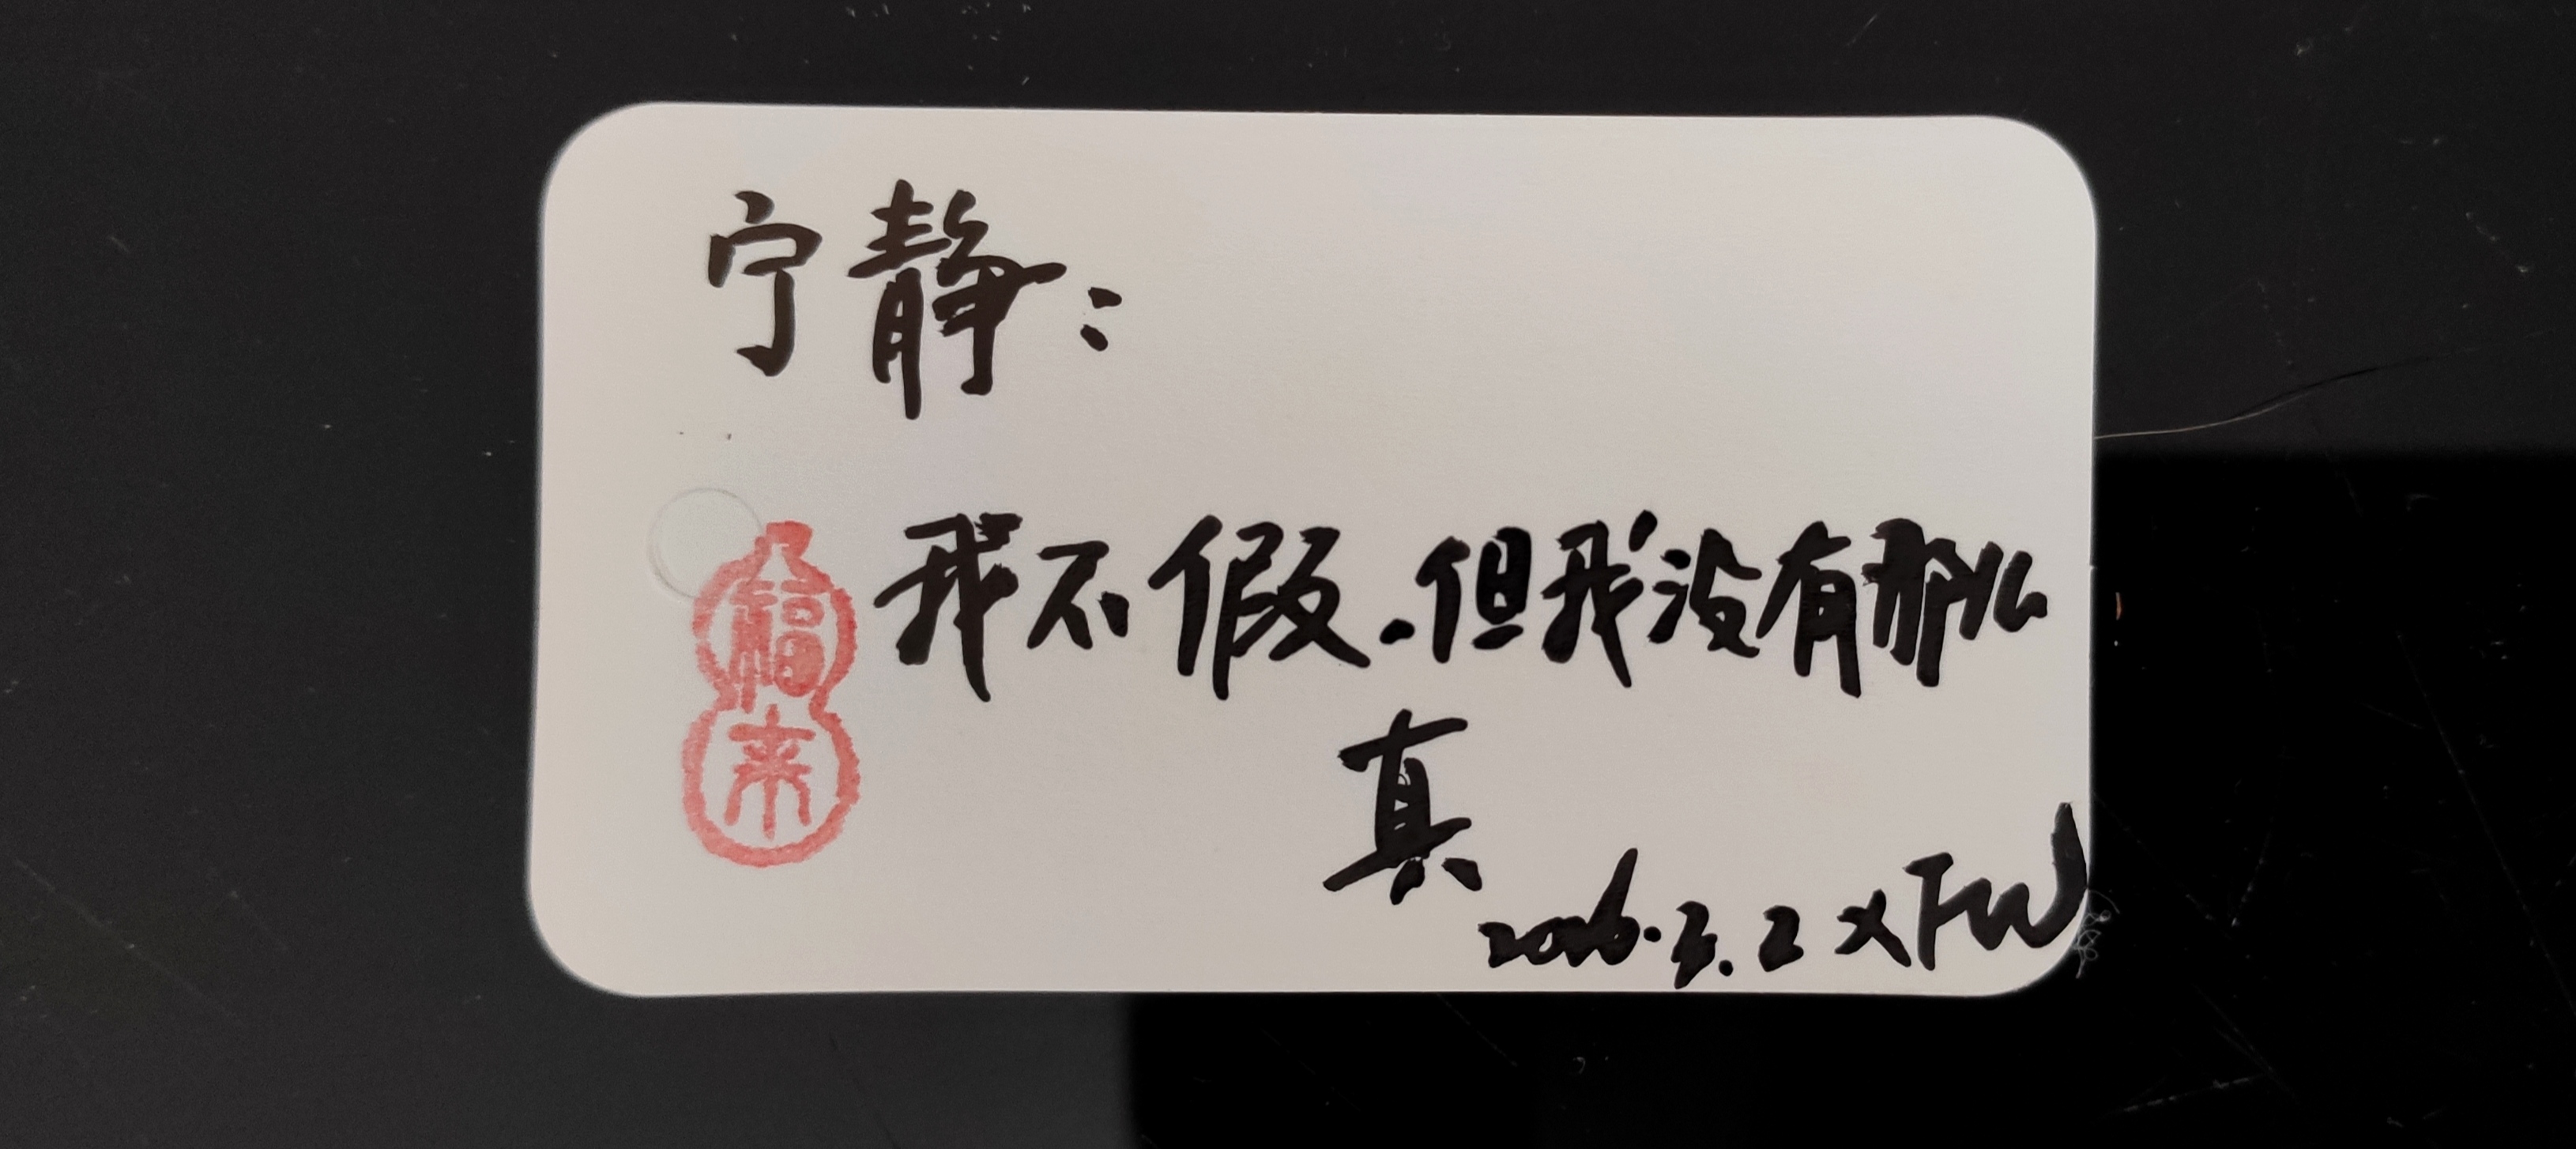 宁静：
我不假.但我没有那么
真
2026.3.2 XFW
福
来